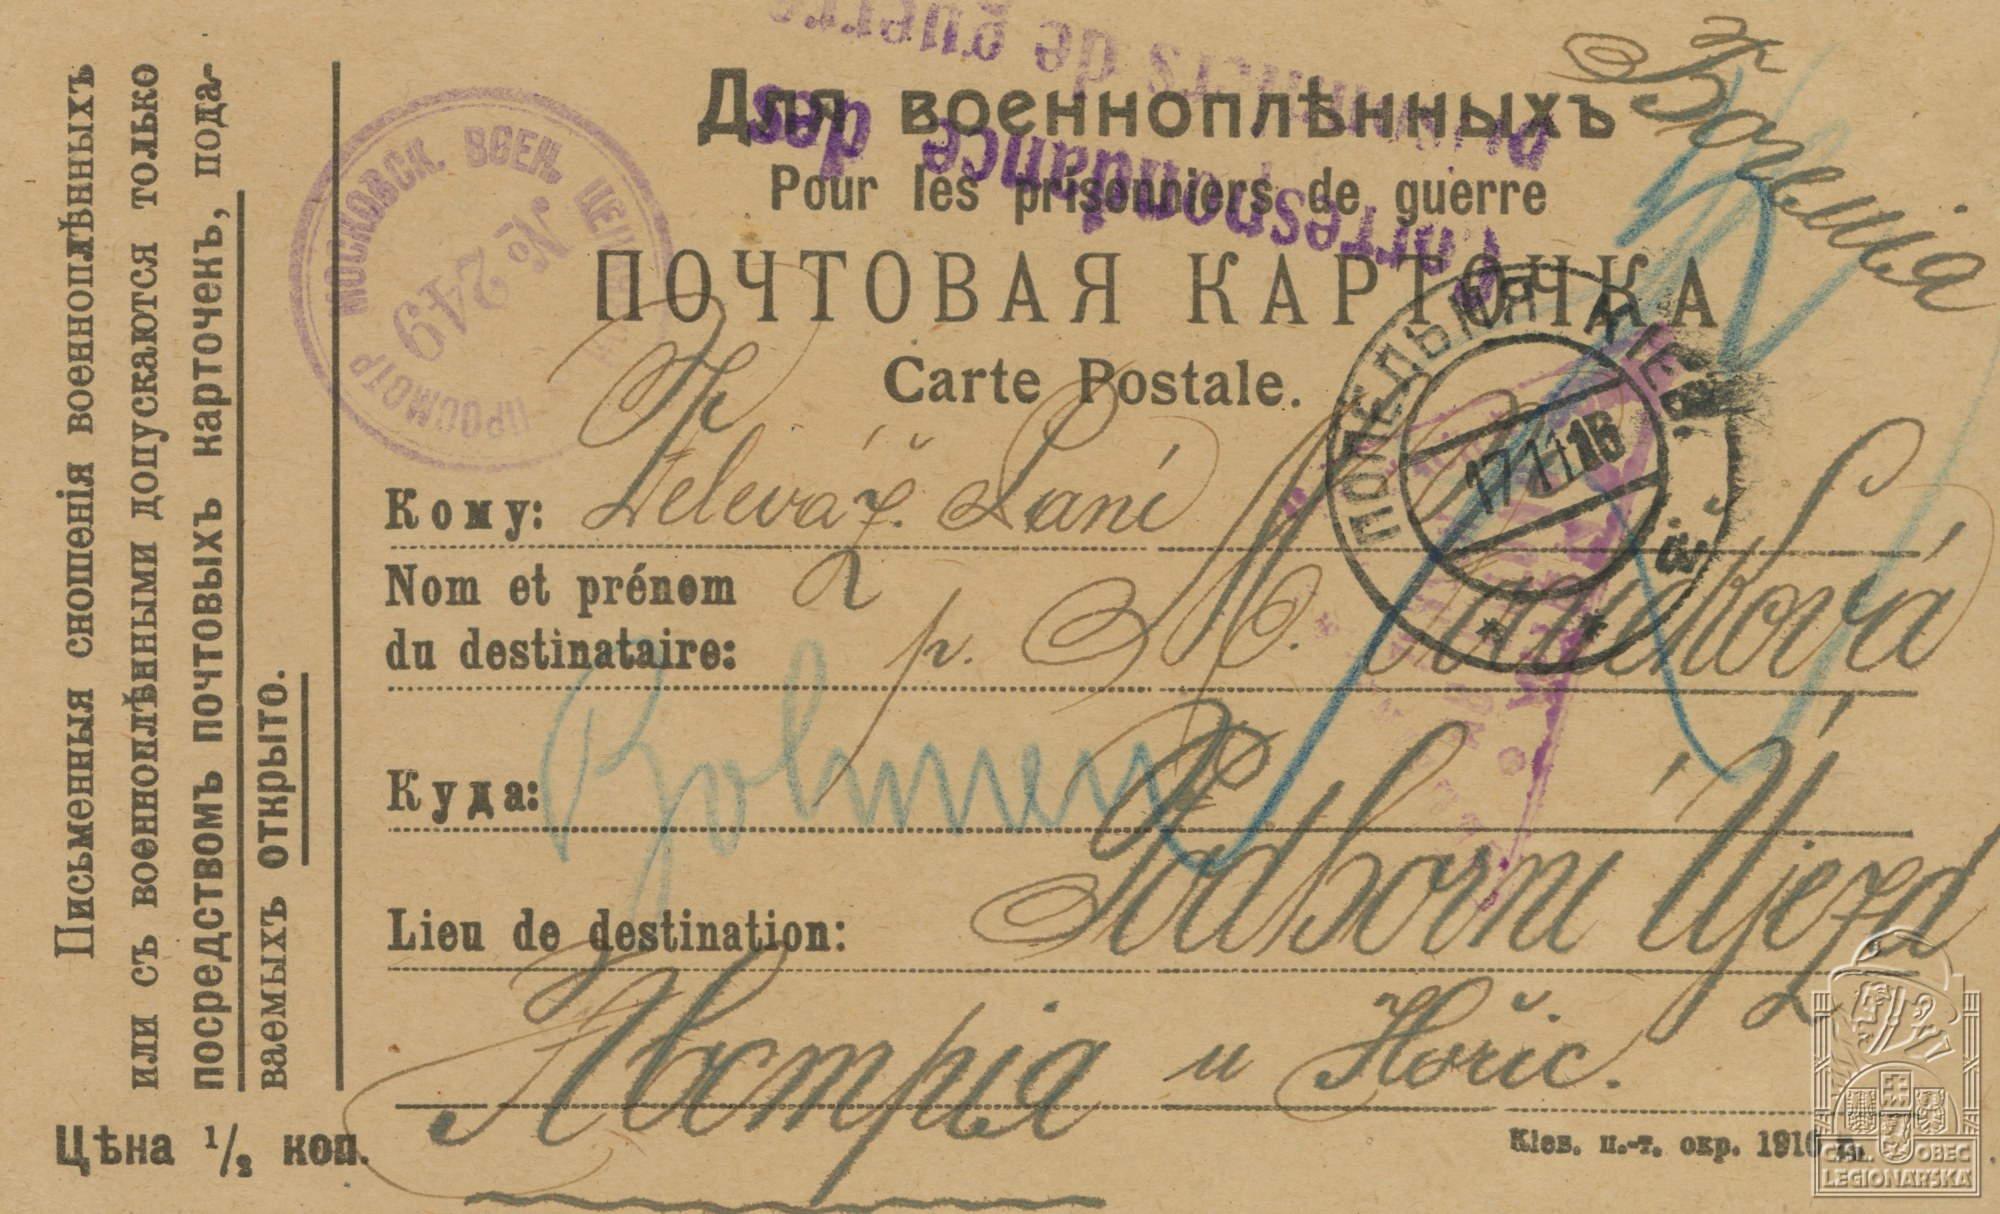 Для военноплѣнныхъ
Pour les prisonniers de guerre
ПОЧТОВАЯ КАРТОЧКА
Carte Postale.
Correspondance des
prisonniers de guerre
Богемія
МОСКОВСК. ВОЕН. ЦЕНЗ
№ 249
ПРОСМОТР
17 11 16
Кому:
Paní
Nom et prénom
du destinataire:
p.
M.
Куда:
Böhmen
Podhorní Újezd
Lieu de destination:
Австрія u Hořic.
Письменныя сношенія военноплѣнныхъ
или съ военноплѣнными допускаются только
посредствомъ почтовыхъ карточекъ, пода-
ваемыхъ открыто.
Цѣна ½ коп.
Кіев. п.-т. окр. 1916 г.
ČSL. OBEC
LEGIONÁŘSKÁ